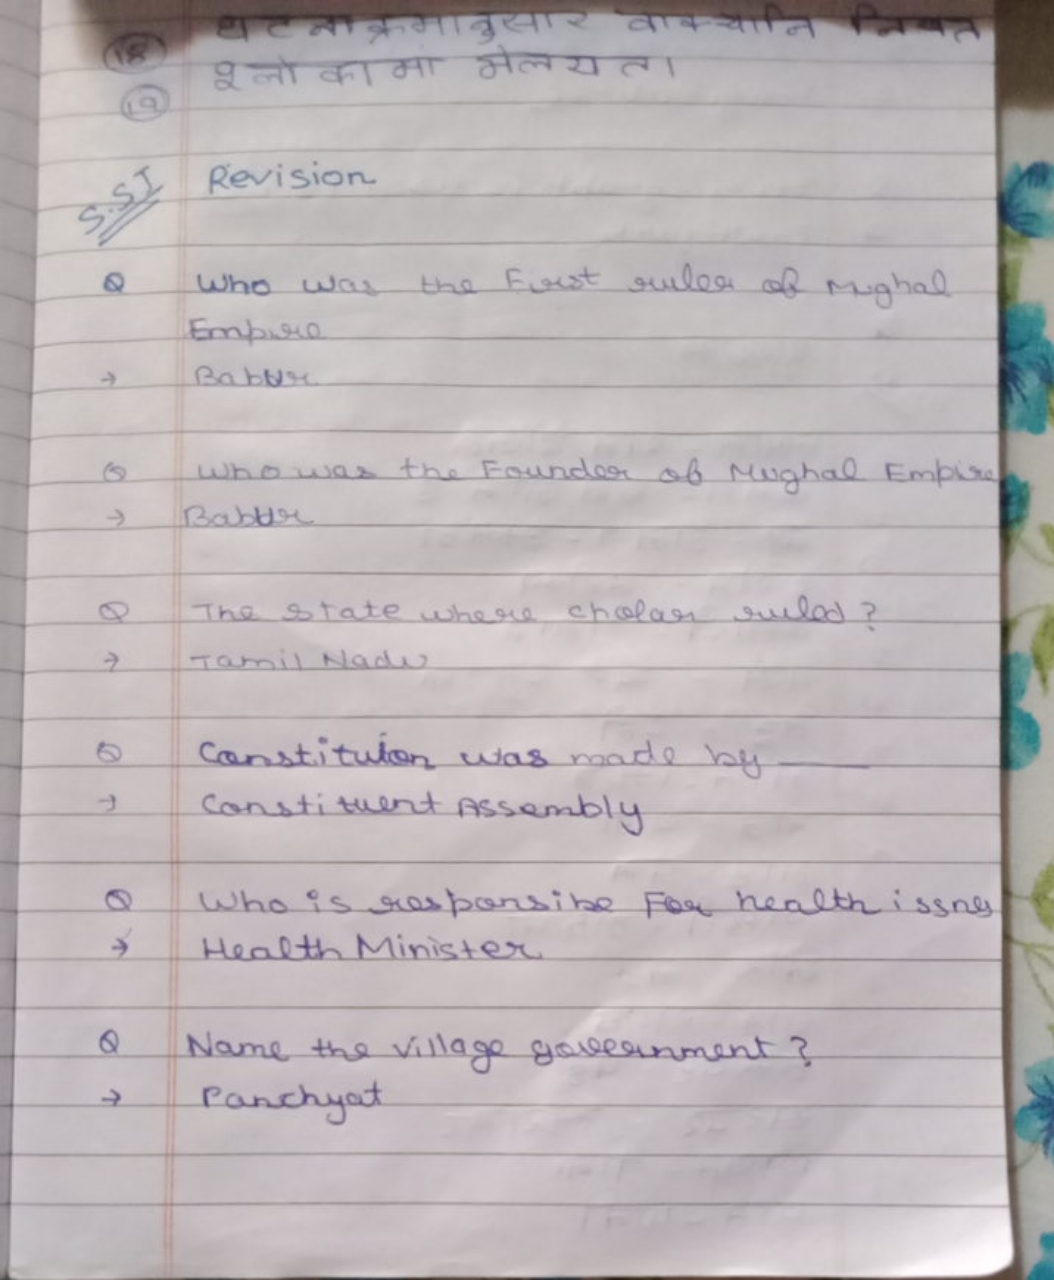 (18) घटनाक्रमानुसार वाक्यानि लिखत
(19) श्लोकामां मेलयत।
S.SI Revision
Q Who was the First ruler of Mughal
Empire
→ Babur
Q Who was the Founder of Mughal Empire
→ Babur
Q The state where cholar ruled?
→ Tamil Nadu
Q Constituion was made by ____
→ Constituent Assembly
Q Who is responsibe For health issues
→ Health Minister
Q Name the village government?
→ Panchyat